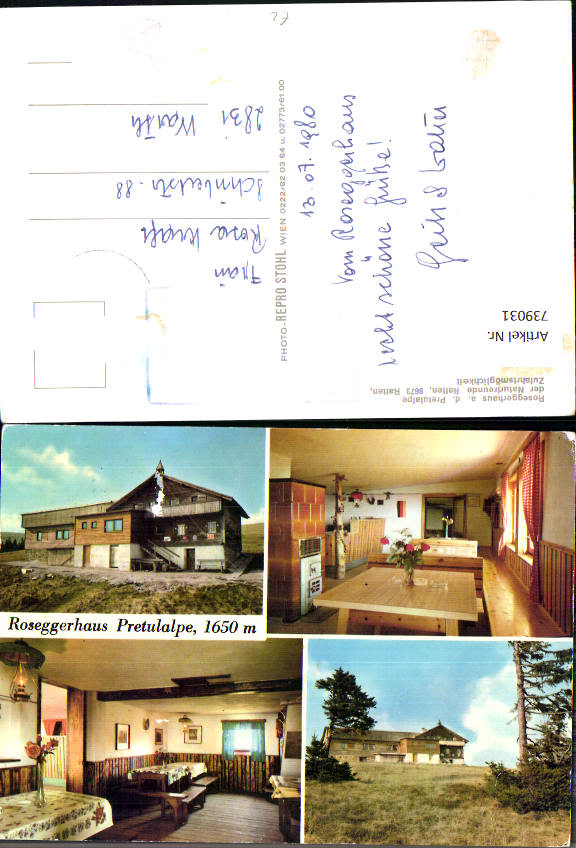 Roseggerhaus a. d. Pretulalpe
der Naturfreunde, Ratten, 8673 Ratten,
Zufahrtsmöglichkeit
Artikel Nr.
739031
13.07.1980
Vom Roseggerhaus
recht schöne Grüße!
PHOTO-REPRO STOHL WIEN 0222/92 03 64 u. 02773/61 00
Frau
Rosa Kraft
Schubertstr. 88
2831 Warth
Roseggerhaus Pretulalpe, 1650 m